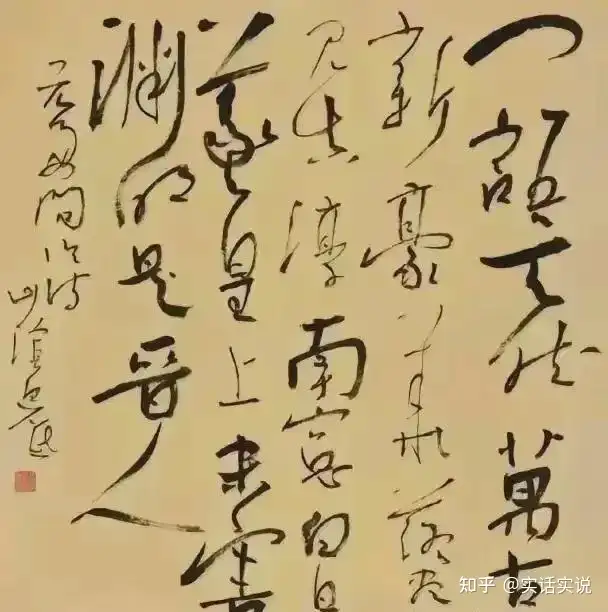 一語天然萬古
新豪華落盡
見真淳南窗白日
羲皇上未害
淵明是晉人
元好問論詩
山陰
知乎 @实话实说